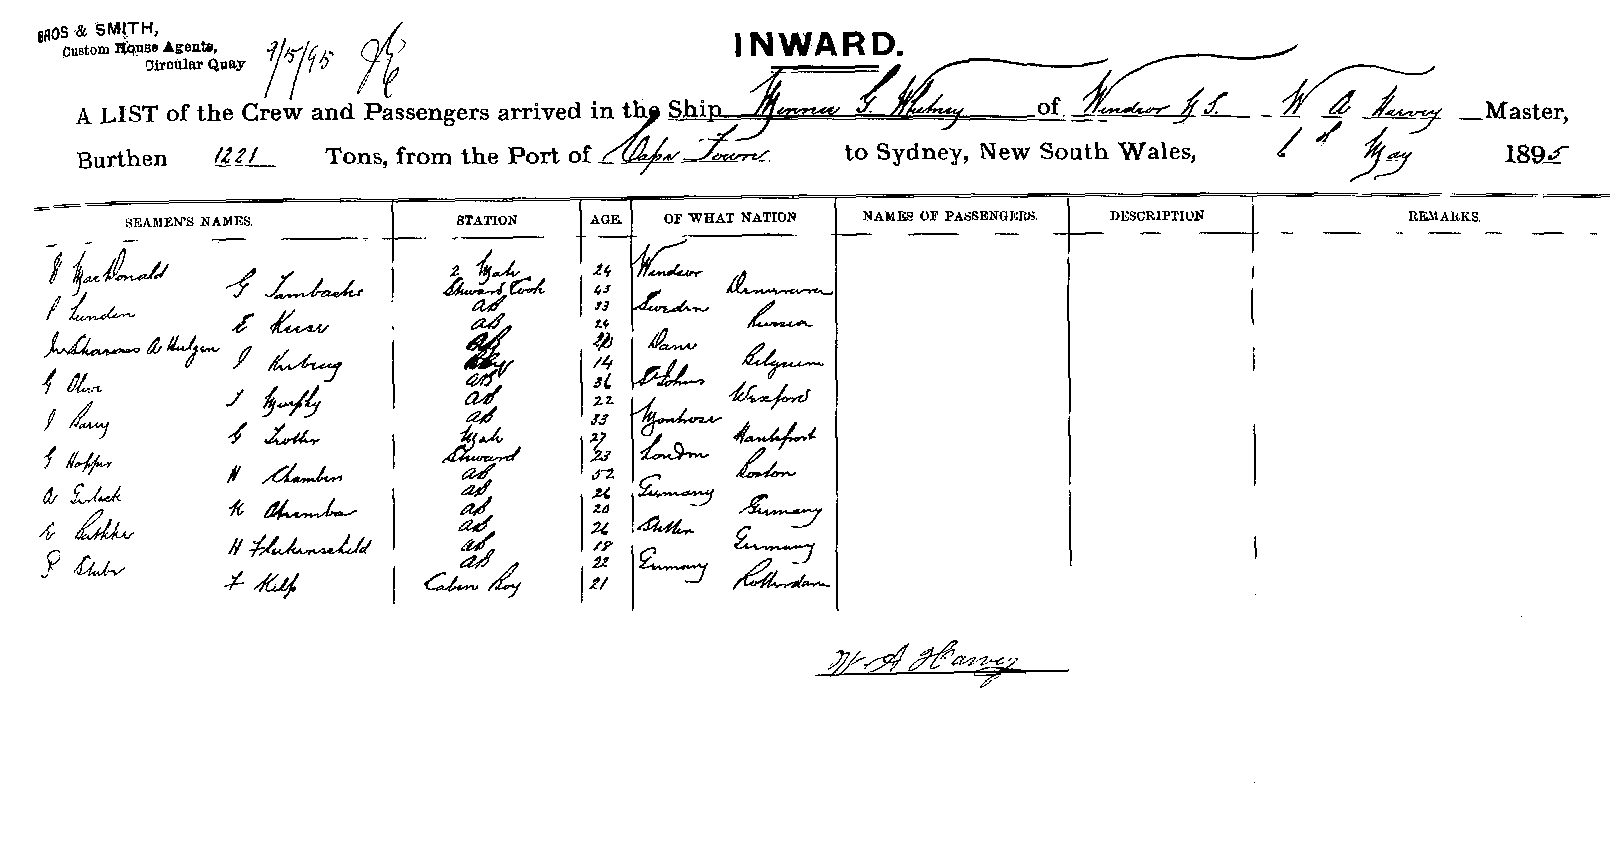 BROS & SMITH,
Custom House Agents,
Circular Quay
9/5/95
INWARD.
A LIST of the Crew and Passengers arrived in the Ship Minnie G. Whitney of Windsor N S. W A Harvey Master,
Burthen 1221 Tons, from the Port of Cape Town to Sydney, New South Wales, 6th May 1895
SEAMEN'S NAMES. STATION AGE. OF WHAT NATION NAMES OF PASSENGERS. DESCRIPTION REMARKS.
MacDonald 2 Mate 24 Windsor
G Steward Cook 43
P Lunden AB 33 Sweden
E AB 24 Russia
AB Dane
J 14 Belgium
G Olive AB 36 St Johns
J Murphy AB 22 Wexford
J Barry AB 33 Montrose
G Trotter Mate 27 Hantsport
G Hopper Steward 23 London
H Chambers AB 52 Boston
A Gerlach AB 26 Germany
K AB 20 Germany
E AB 26 Stettin
H AB 18 Germany
P AB 22 Germany
F Kelp Cabin Boy 21 Rotterdam
W A Harvey